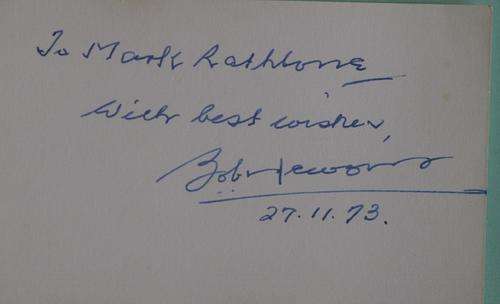 To Mark Rathbone
With best wishes,
Bob
27.11.73.